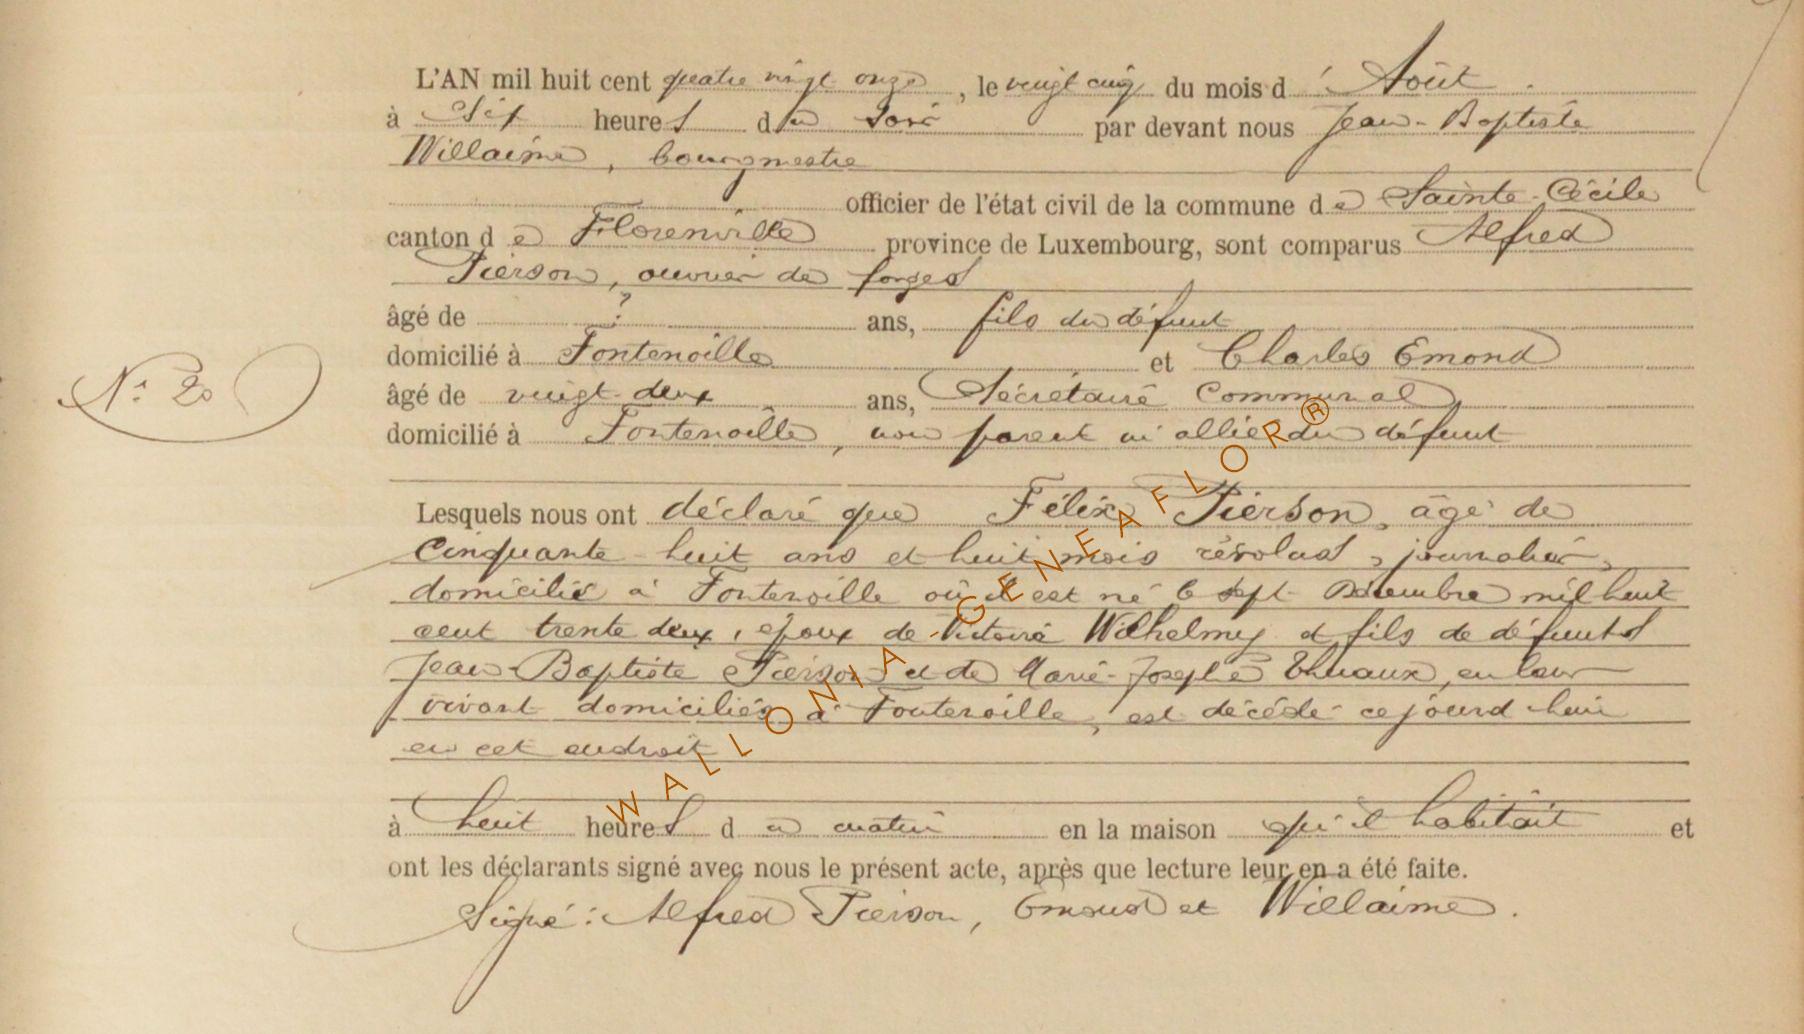 L'AN mil huit cent quatre vingt onze, le vingt cinq du mois d' Août.
à six heures du soir par devant nous Jean-Baptiste
Willaime, bourgmestre
officier de l'état civil de la commune de Sainte-Cécile
canton de Florenville province de Luxembourg, sont comparus Alfred
Pierson, ouvrier de forges
âgé de ? ans, fils du défunt
domicilié à Fontenoille et Charles Emond
âgé de vingt-deux ans, Secrétaire Communal
domicilié à Fontenoille, non parent ni allié du défunt
N° 20
Lesquels nous ont déclaré que Félix Pierson, âgé de
cinquante-huit ans et huit mois révolus, journalier,
domicilié à Fontenoille où il est né le sept Décembre mil huit
cent trente deux, époux de Victoire Wilhelmy et fils de défunts
Jean-Baptiste Pierson et de Marie-Josephe en leur
vivant domiciliés à Fontenoille, est décédé ce jourd'hui
en cet endroit
à huit heures du matin en la maison qu'il habitait et
ont les déclarants signé avec nous le présent acte, après que lecture leur en a été faite.
Signé: Alfred Pierson, Emond et Willaime.
WALLONIA-GENEAFLOR®